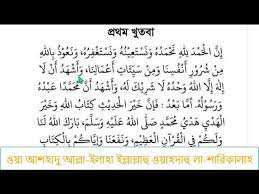 প্রথম খুতবা
إِنَّ الْحَمْدَ لِلَّهِ نَحْمَدُهُ وَنَسْتَعِيْنُهُ وَنَسْتَغْفِرُهُ، وَنَعُوْذُ بِاللهِ
مِنْ شُرُوْرِ أَنْفُسِنَا وَمِنْ سَيِّئَاتِ أَعْمَالِنَا، وَأَشْهَدُ أَنْ لَا
إِلٰهَ إِلَّا اللهُ وَحْدَهُ لَا شَرِيْكَ لَهُ، وَأَشْهَدُ أَنَّ مُحَمَّدًا عَبْدُهُ
وَرَسُوْلُهُ، أَمَّا بَعْدُ: فَإِنَّ خَيْرَ الْحَدِيْثِ كِتَابُ اللهِ وَخَيْرَ
الْهَدْيِ هَدْيُ مُحَمَّدٍ صَلَّى اللهُ عَلَيْهِ وَسَلَّمَ، بَارَكَ اللهُ لَنَا
وَلَكُمْ فِي الْقُرْآنِ الْعَظِيْمِ، وَنَفَعَنَا وَإِيَّاكُمْ بِالْكِتَابِ
ওয়া আশহাদু আল্লা-ইলাহা ইল্লাল্লাহু ওয়াহদাহু লা-শারিকালাহ